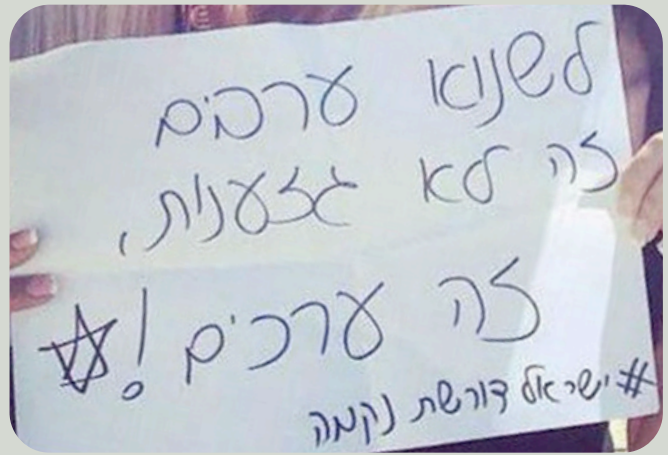 לשנוא ערבים
זה לא גזענות,
זה ערכים!
#ישראל דורשת נקמה